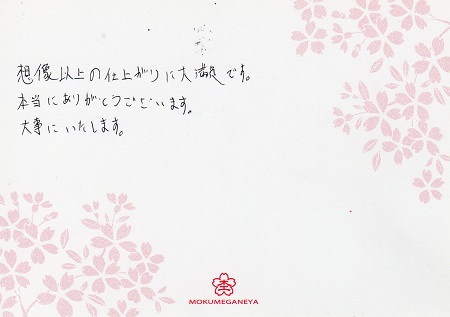 想像以上の仕上がりに大満足です。
本当にありがとうございます。
大事にいたします。
MOKUMEGANEYA